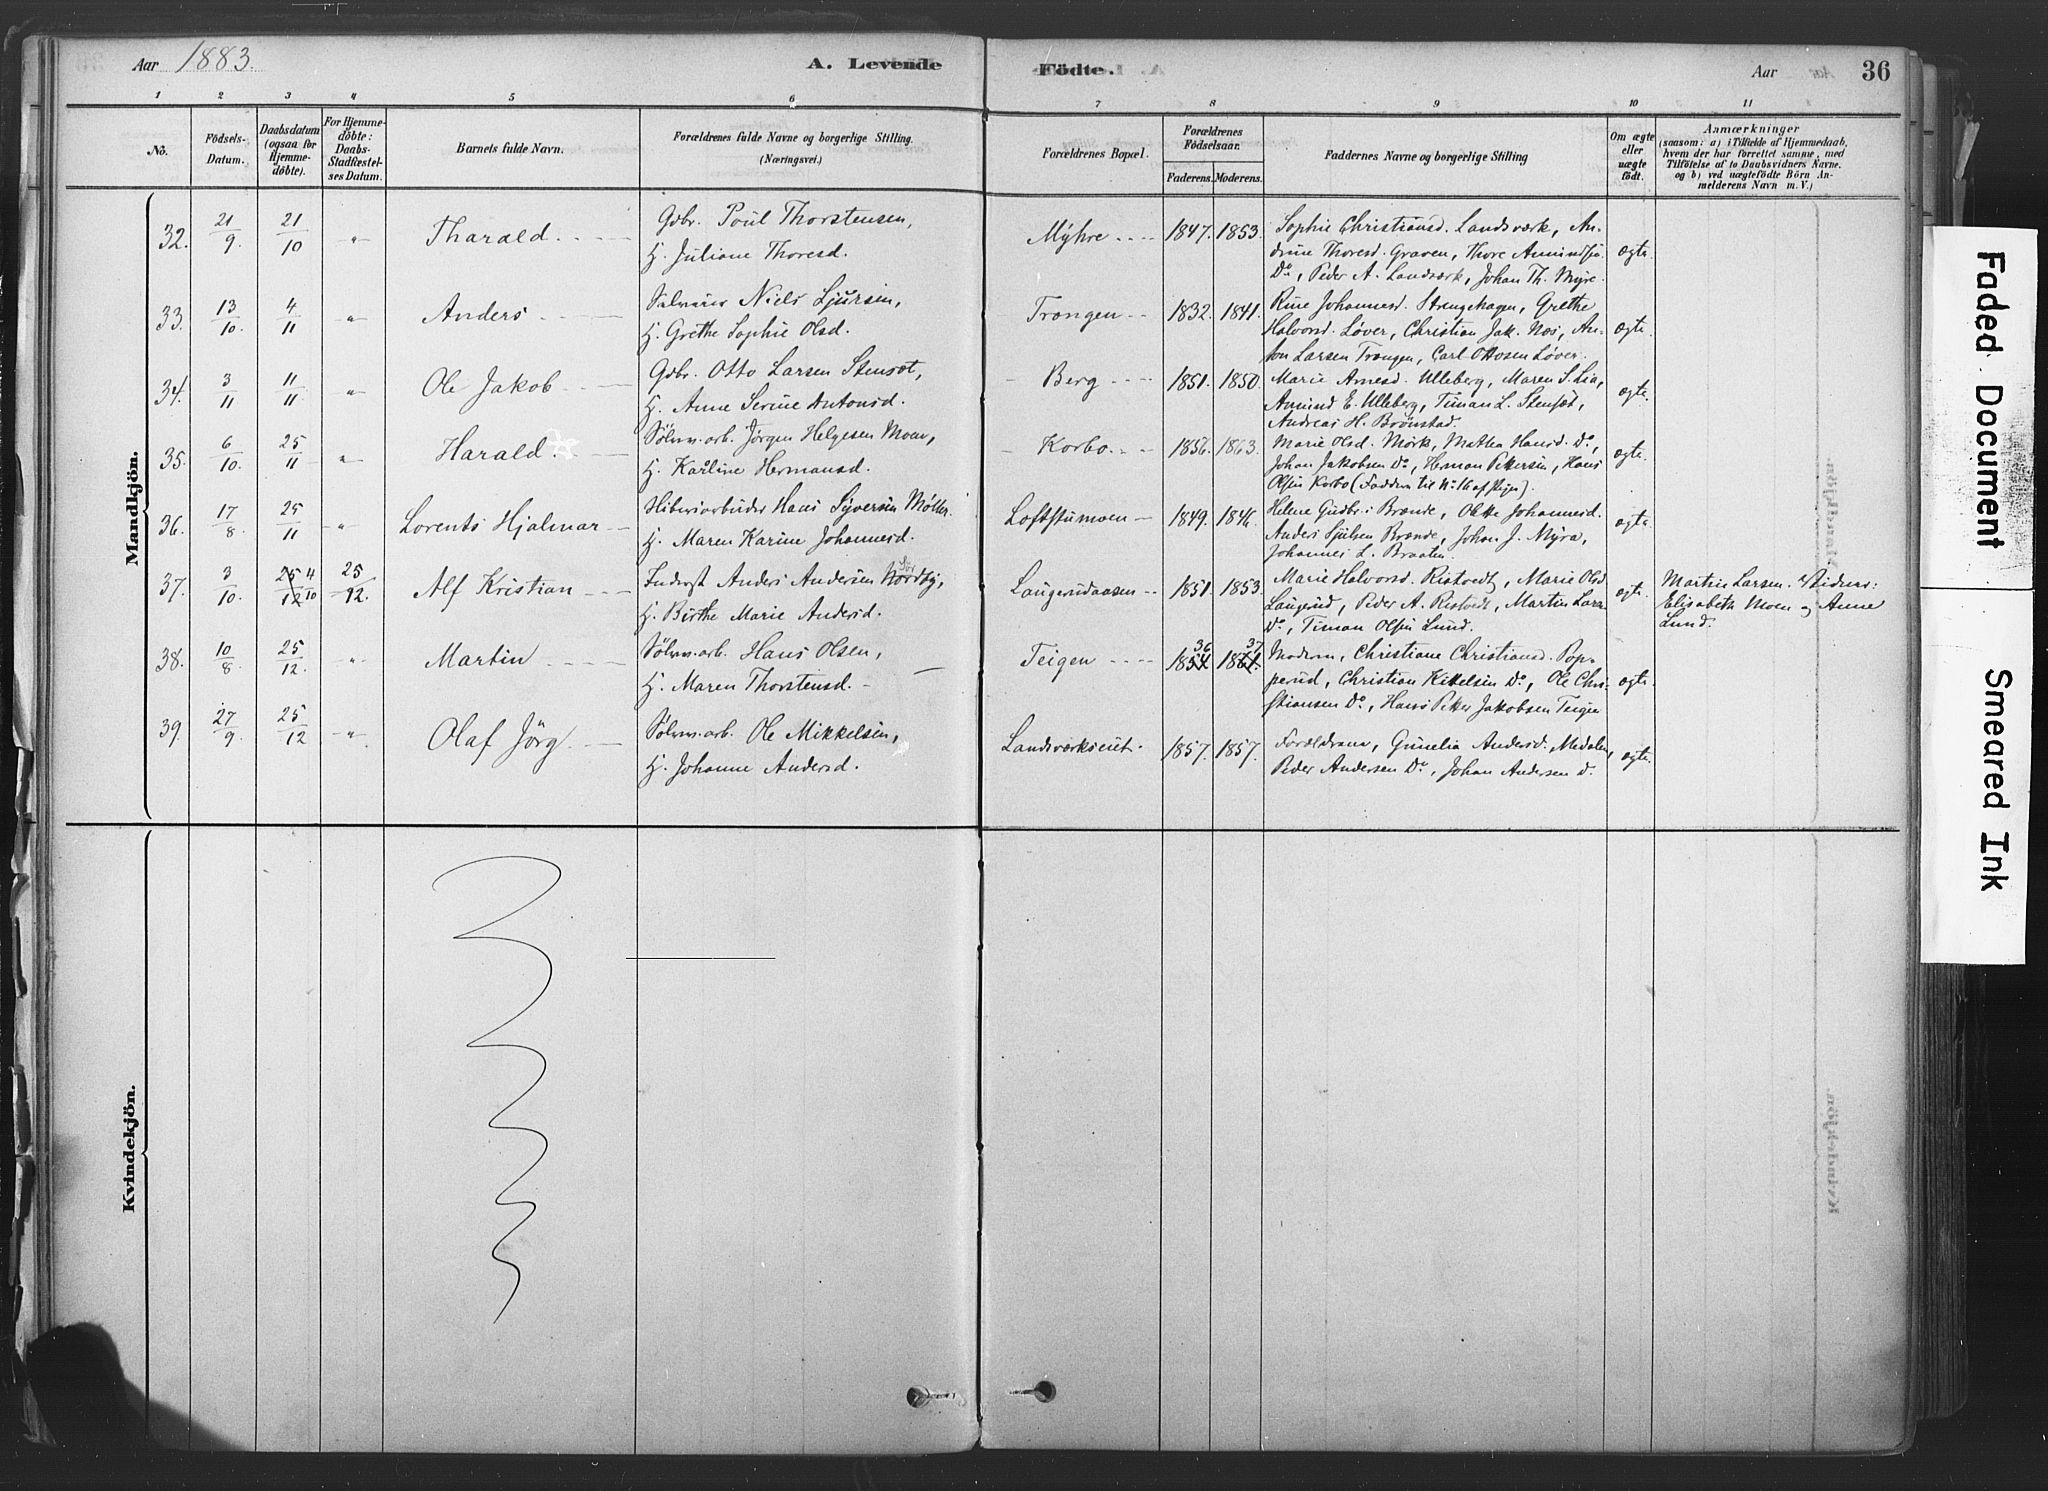 Aar 1883.
A. Levende Födte.
Aar
36
1 2 3 4 5 6 7 8 9 10 11
No.
Födsels-Datum.
Daabsdatum (ogsaa for Hjemme-döbte).
For Hjemme-döbte: Daabs-Stadfæstel-ses Datum.
Barnets fulde Navn.
Forældrenes fulde Navne og borgerlige Stilling.
(Næringsvei.)
Forældrenes Bopæl.
Forældrenes Födselsaar.
Faderens. Moderens.
Faddernes Navne og borgerlige Stilling
Om ægte eller uægte födt.
Anmærkninger
(saasom: a) i Tilfælde af Hjemmedaab,
hvem der har forrettet samme, med
Tilföielse af to Daabsvidners Navne.
og b) ved uægtefödte Börn An-
melderens Navn m. V.)
Mandkjön.
32. 21/9 21/10 " Tharald. Gdbr. Poul Thorstensen,
H. Juliane Thoresd.
Myhre 1847. 1853.
Sophie Christiansd. Landsværk, An-
drine Thoresd. Graven, Thore Amundsen
Do, Peder A. Landsværk, Johan Th. Myre.
ægte.
33. 13/10 4/11 " Anders Niels Ljursen,
H. Grethe Sophie Olsd.
Trangen 1832. 1841.
Johannesd. Strengehagen, Grethe
Halvorsd. Løver, Christian Jak. Nos, An-
ton Larsen Trangen, Carl Ottosen Løver.
ægte.
34. 3/11 11/11 " Ole Jakob Gdbr. Otto Larsen Stensæt,
H. Anne Serine Antonsd.
Berg 1851. 1850.
Marie Arnesd. Ulleberg, Maren S. Lia,
Amund E. Ulleberg, Timan L. Stensæt,
Andreas H. Brönstad.
ægte.
35. 6/10 25/11 " Harald. Sølvv. arb. Jørgen Helgesen Moen,
H. Karline Hermansd.
Korbo. 1856. 1863.
Marie Olsd. Mørk, Mathea Hansd. Do,
Johan Jakobsen Do, Herman Pettersen, Hans
Olsen Korbo
ægte.
36. 17/8 25/11 " Lorents Hjalmar Hans Syversen Møller.
H. Maren Karine Johannesd.
Loftstumoen 1849. 1846.
Helene Gudbr. Brænde, Olette Johannesd.
Anders Brænde, Johan J. Myra,
Johannes L. Braaten.
ægte.
37. 3/10 25/12 4/10 25/12 Alf Kristian Inderst Anders Andersen
H. Birthe Marie Andersd.
Laugerudaasen 1851. 1853.
Marie Halvorsd. Ristvedt, Marie Olsd.
Laugerud, Peder A. Ristvedt, Martin Lars.
Do, Timan Olsen Lund.
ægte.
Martin Larsen. Vidner:
Elisabeth Moen og Anne
Lund.
38. 10/8 25/12 " Martin Sølvv. arb. Hans Olsen,
H. Maren Thorstensd.
Teigen 1854 36 1861. 37
Modren, Christiane Christiansd. Pop-
perud, Christian Kittelsen Do, Ole Chri-
stiansen Do, Hans Petter Jakobsen Teigen
ægte.
39. 27/9 25/12 " Olaf Jörg. Sølvv. arb. Ole Mikkelsen,
H. Johanne Andersd.
Landsværkseiet. 1857. 1857.
Forældrene, Gunelia Andersd. Medalen,
Peder Andersen Do, Johan Andersen Do.
ægte.
Kvindekjön.
Faded Document
Smeared Ink